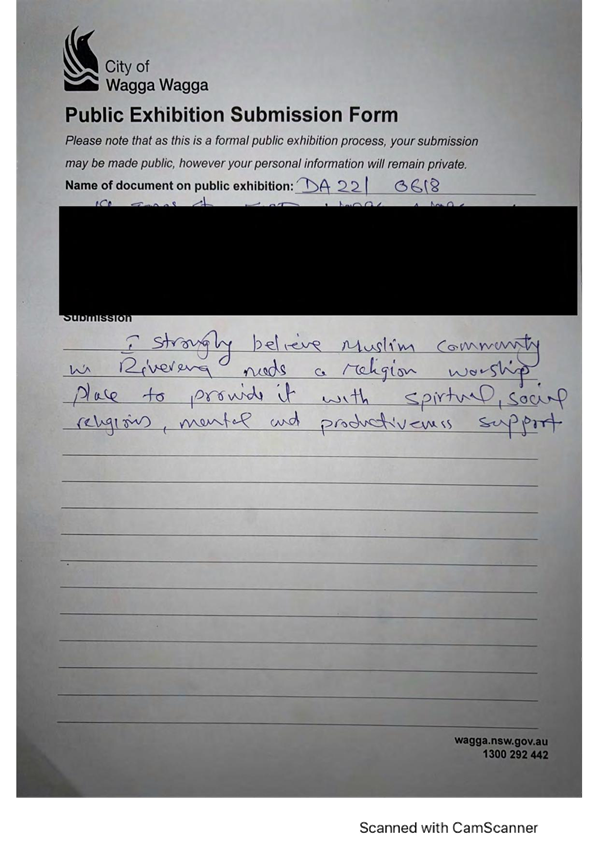 City of
Wagga Wagga
Public Exhibition Submission Form
Please note that as this is a formal public exhibition process, your submission
may be made public, however your personal information will remain private.
Name of document on public exhibition: DA 22/ 0618
Submission
I strongly believe Muslim Community
in Riverena needs a religion worship
place to provide it with spirtual, social
religious, mental and productiveness support
wagga.nsw.gov.au
1300 292 442
Scanned with CamScanner